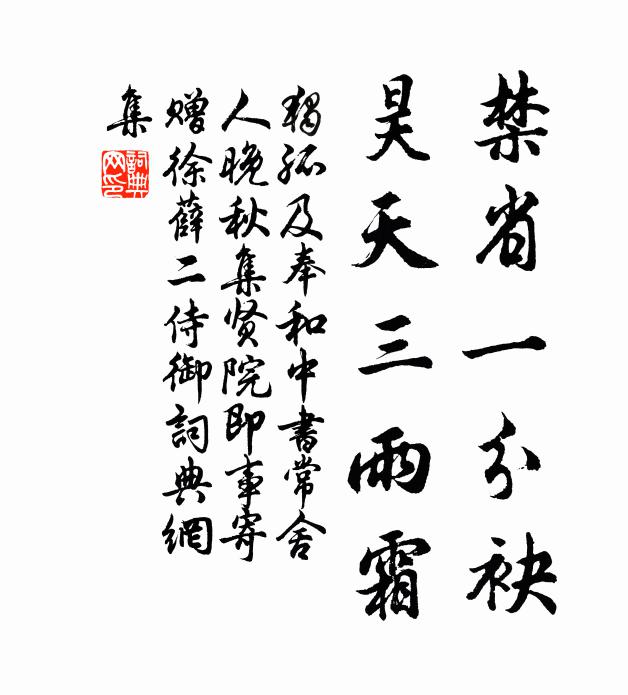 禁省一分袂
昊天三雨霜
獨孤及奉和中書常舍
人晚秋集贤院即事寄
赠徐薛二侍御詞典網
集
詞典網印